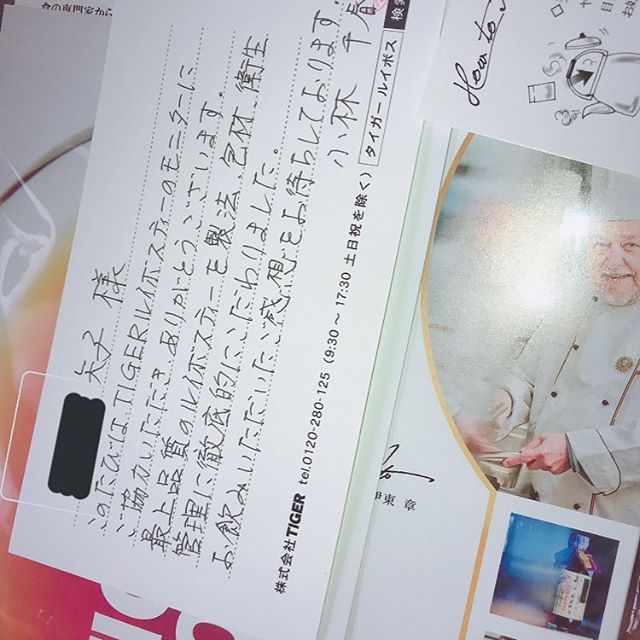 食の専門家から
矢子 様
このたびはTIGERルイボスティーのモニターに
ご協力いただき ありがとうございます。
最上品質のルイボスティーを製法 色材 衛生
管理に徹底的にこだわりました。
お飲みいただいたご感想をお待ちしております。
小林 千
株式会社TIGER tel.0120-280-125（9:30 ～ 17:30 土日祝を除く）
タイガー ルイボス 検索
How to
伊東 章